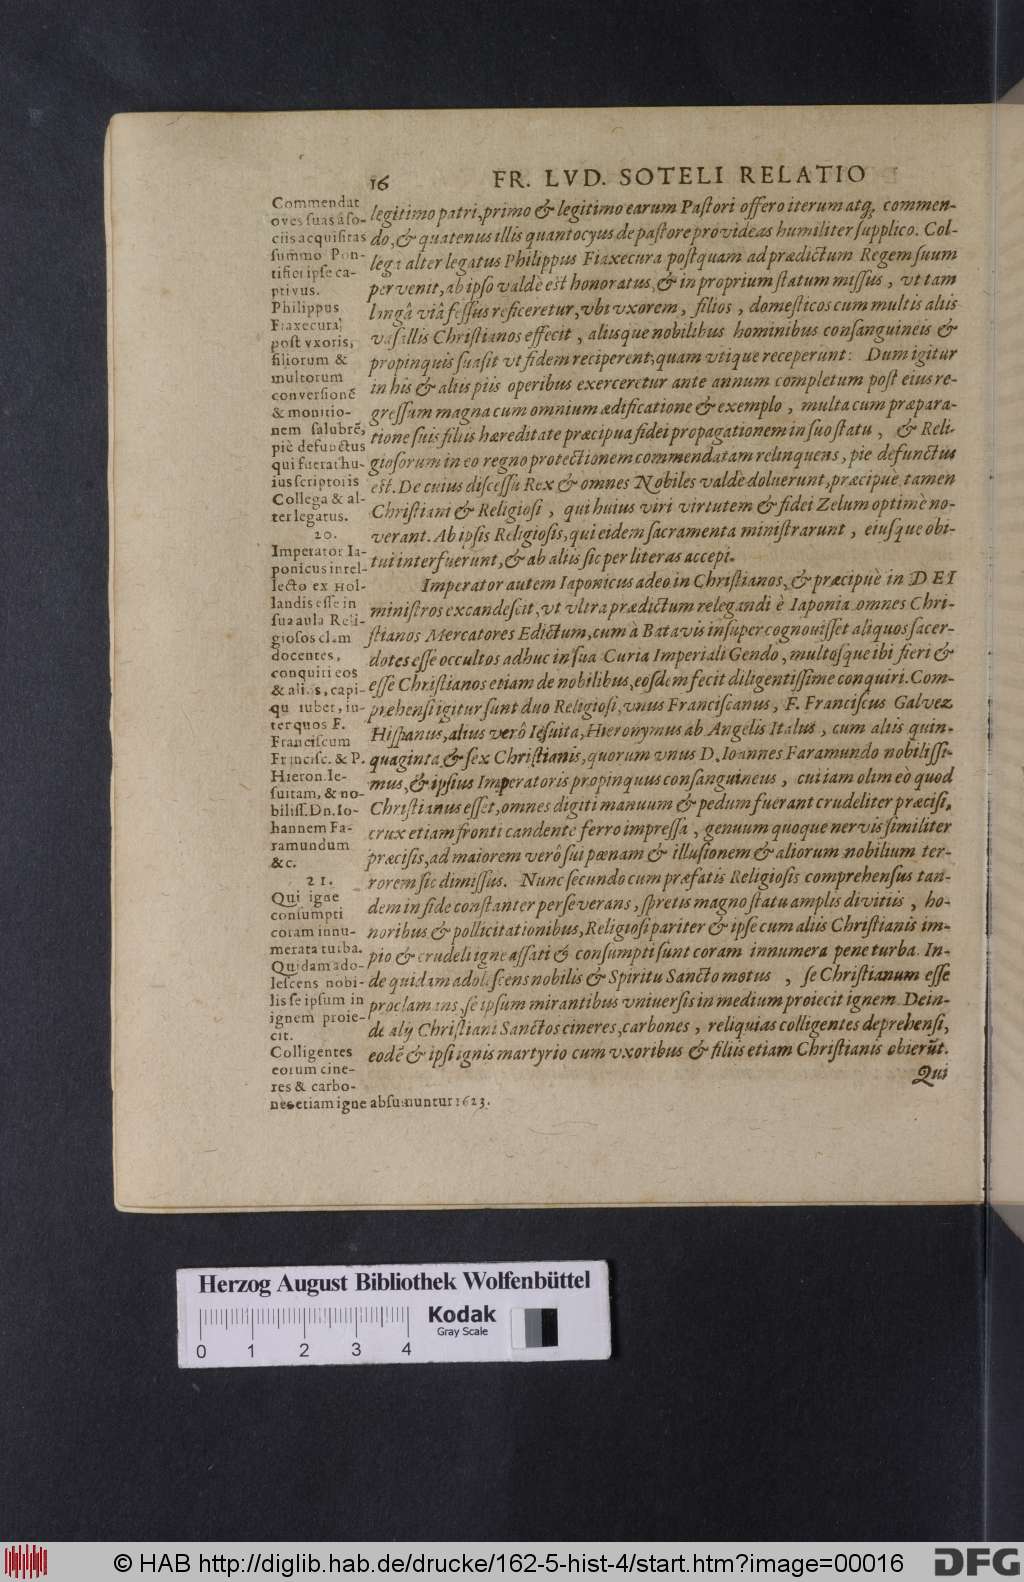 16 FR. LVD. SOTELI RELATIO
legitimo patri, primo & legitimo earum Pastori offero iterum atq; commen-
do, & quatenus illis quantocyus de pastore provideas humiliter supplico. Col-
lega alter legatus Philippus Fiaxecura postquam ad prædictum Regem suum
pervenit, ab ipso valdè est honoratus, & in proprium statum missus, ut tam
longâ viâ fessus reficeretur, vbi vxorem, filios, domesticos cum multis aliis
vasallis Christianos effecit, aliisque nobilibus hominibus consanguineis &
propinquis suasit vt fidem reciperent, quam vtique receperunt: Dum igitur
in his & aliis piis operibus exerceretur ante annum completum post eius re-
gressum magna cum omnium ædificatione & exemplo, multa cum præpara-
tione suis filiis hæreditate præcipua fidei propagationem in suo statu, & Reli-
giosorum in eo regno protectionem commendatam relinquens, pie defunctus
est. De cuius discessu Rex & omnes Nobiles valdè doluerunt, præcipuè, tamen
Christiani & Religiosi, qui huius viri virtutem & fidei Zelum optimè no-
verant. Ab ipsis Religiosis, qui eidem sacramenta ministrarunt, eiusque obi-
tui interfuerunt, & ab aliis sic per literas accepi.
Imperator autem Iaponicus adeo in Christianos, & præcipuè in DEI
ministros excandescit, vt vltra prædictum relegandi è Iaponia omnes Chri-
stianos Mercatores Edictum, cum à Batavis insuper cognouisset aliquos sacer-
dotes esse occultos adhuc in sua Curia Imperiali Gendo, multosque ibi fieri &
esse Christianos etiam de nobilibus, eosdem fecit diligentissime conquiri. Com-
prehensi igitur sunt duo Religiosi, vnus Franciscanus, F. Franciscus Galvez
Hispanus, alius verò Iesuita, Hieronymus ab Angelis Italus, cum aliis quin-
quaginta & sex Christianis, quorum vnus D. Ioannes Faramundo nobilissi-
mus, & ipsius Imperatoris propinquus consanguineus, cui iam olim eò quod
Christianus esset, omnes digiti manuum & pedum fuerant crudeliter præcisi,
crux etiam fronti candente ferro impressa, genuum quoque nervis similiter
præcisis, ad maiorem verò sui pœnam & illusionem & aliorum nobilium ter-
rorem sic dimissus. Nunc secundo cum præfatis Religiosis comprehensus tan-
dem in fide constanter perseverans, spretis magno statu amplis divitiis, ho-
noribus & pollicitationibus, Religiosi pariter & ipse cum aliis Christianis im-
pio & crudeli igne assati & consumpti sunt coram innumera pene turba. In-
de quidam adolescens nobilis & Spiritu Sancto motus, se Christianum esse
proclamans, se ipsum mirantibus vniuersis in medium proiecit ignem. Dein-
de alij Christiani Sanctos cineres, carbones, reliquias colligentes deprehensi,
eodē & ipsi ignis martyrio cum vxoribus & filiis etiam Christianis obierūt.
Qui
Commendat
oves suas à so-
ciis acquisitas
summo Pon-
tifici ipse ca-
ptivus.
Philippus
Fiaxecura,
post vxoris,
filiorum &
multorum
conversionē
& monitio-
nem salubrē,
piè defunctus
qui fuerat hu-
ius scriptoris
Collega & al-
ter legatus.
20.
Imperator Ia-
ponicus intel-
lecto ex Hol-
landis esse in
sua aula Reli-
giosos clam
docentes,
conquiri eos
& alios, capi-
qu iubet, in-
ter quos F.
Franciscum
Francisc. & P.
Hieron. Ie-
suitam, & no-
biliss. Dn. Io-
hannem Fa-
ramundum
&c.
21.
Qui igne
consumpti
coram innu-
merata turba.
Quidam ado-
lescens nobi-
lis se ipsum in
ignem proie-
cit.
Colligentes
eorum cine-
res & carbo-
nes etiam igne absumuntur 1623.
Herzog August Bibliothek Wolfenbüttel
Kodak
Gray Scale
0 1 2 3 4
© HAB http://diglib.hab.de/drucke/162-5-hist-4/start.htm?image=00016
DFG